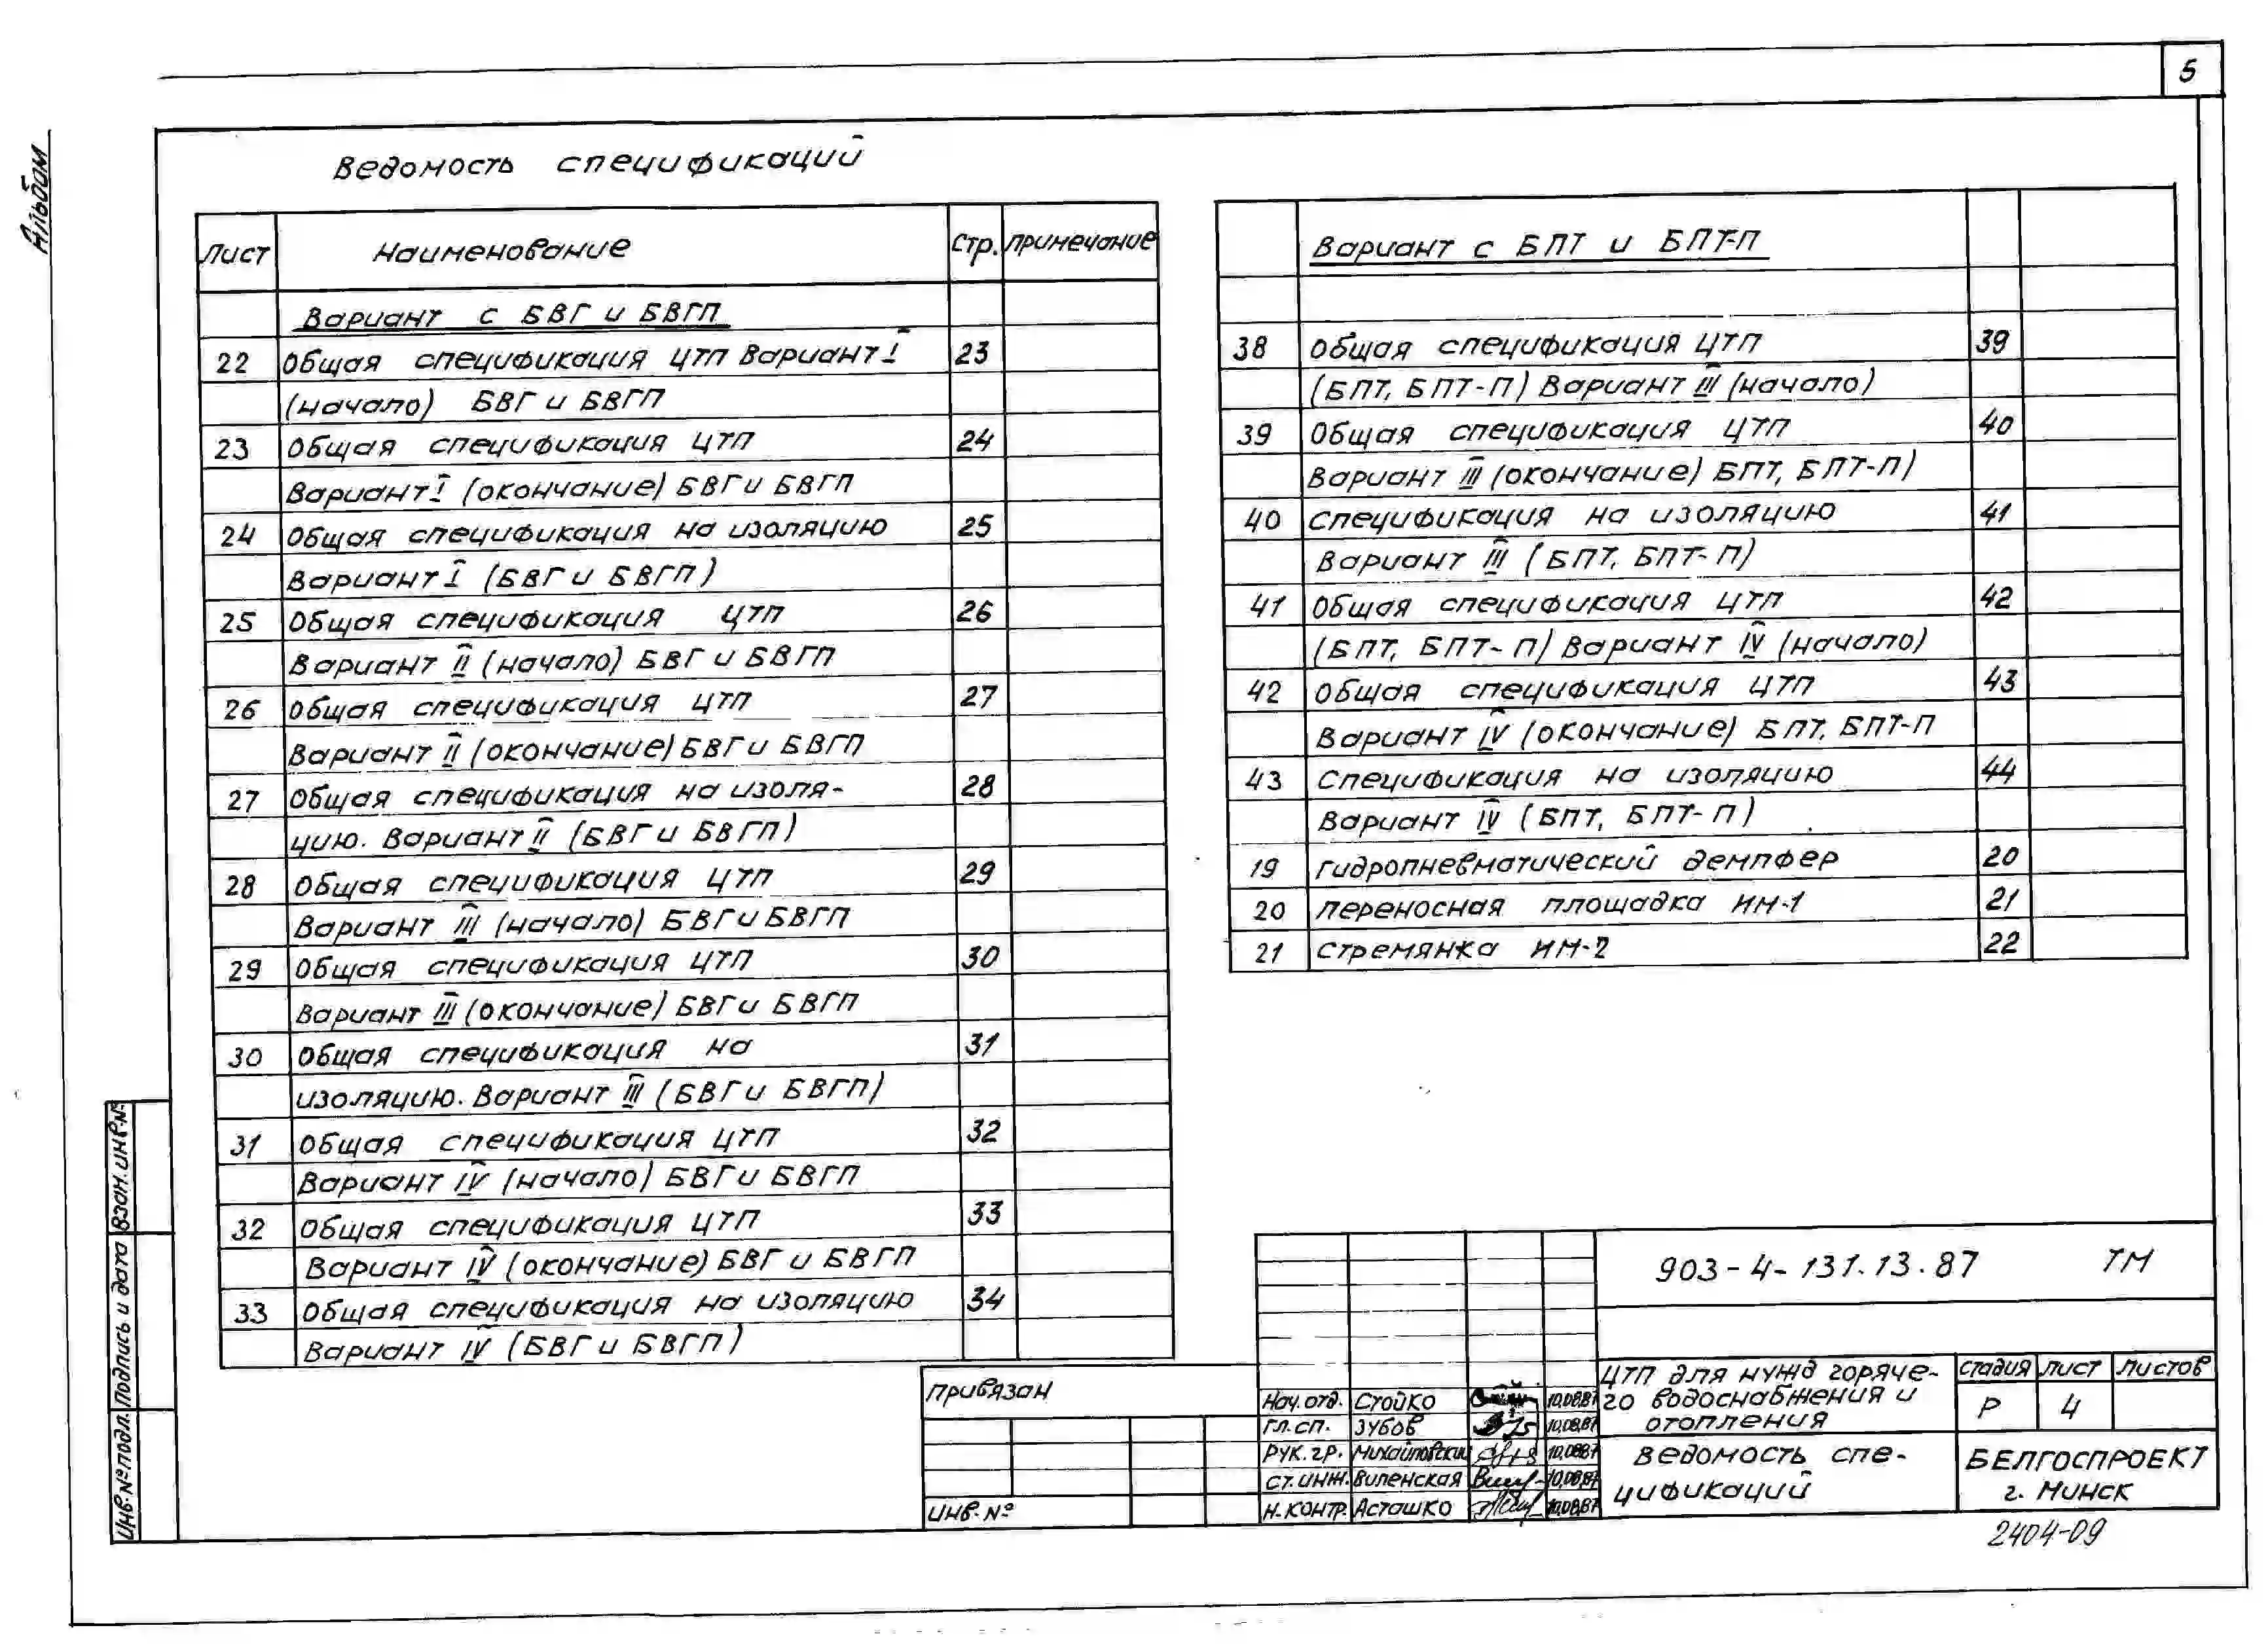 5
Альбом
Ведомость спецификаций
Лист Наименование Стр. Примечание
Вариант с БВГ и БВГП
22 Общая спецификация ЦТП Вариант I 23
(начало) БВГ и БВГП
23 Общая спецификация ЦТП 24
Вариант I (окончание) БВГ и БВГП
24 Общая спецификация на изоляцию 25
Вариант I (БВГ и БВГП)
25 Общая спецификация ЦТП 26
Вариант II (начало) БВГ и БВГП
26 Общая спецификация ЦТП 27
Вариант II (окончание) БВГ и БВГП
27 Общая спецификация на изоля- 28
цию. Вариант II (БВГ и БВГП)
28 Общая спецификация ЦТП 29
Вариант III (начало) БВГ и БВГП
29 Общая спецификация ЦТП 30
Вариант III (окончание) БВГ и БВГП
30 Общая спецификация на 31
изоляцию. Вариант III (БВГ и БВГП)
31 Общая спецификация ЦТП 32
Вариант IV (начало) БВГ и БВГП
32 Общая спецификация ЦТП 33
Вариант IV (окончание) БВГ и БВГП
33 Общая спецификация на изоляцию 34
Вариант IV (БВГ и БВГП)
Вариант с БПТ и БПТ-П
38 Общая спецификация ЦТП 39
(БПТ, БПТ-П) Вариант III (начало)
39 Общая спецификация ЦТП 40
Вариант III (окончание) БПТ, БПТ-П)
40 Спецификация на изоляцию 41
Вариант III (БПТ, БПТ-П)
41 Общая спецификация ЦТП 42
(БПТ, БПТ-П) Вариант IV (начало)
42 Общая спецификация ЦТП 43
Вариант IV (окончание) БПТ, БПТ-П
43 Спецификация на изоляцию 44
Вариант IV (БПТ, БПТ-П)
19 Гидропневматический демпфер 20
20 Переносная площадка ИМ-1 21
21 Стремянка ИМ-2 22
Взам.инв.№
Подпись и дата
Инв.№подл.
Привязан
Инв.№
Нач.отд. Стойко 10.08.87
Гл.сп. Зубов 10.08.87
Рук.гр. Михайловский 10.08.87
Ст.инж. Виленская 10.08.87
Н.контр. Асташко 10.08.87
903-4-131.13.87 ТМ
ЦТП для нужд горяче-
го водоснабжения и
отопления
Стадия Лист Листов
Р 4
Ведомость спе-
цификаций
БЕЛГОСПРОЕКТ
г. Минск
2404-09